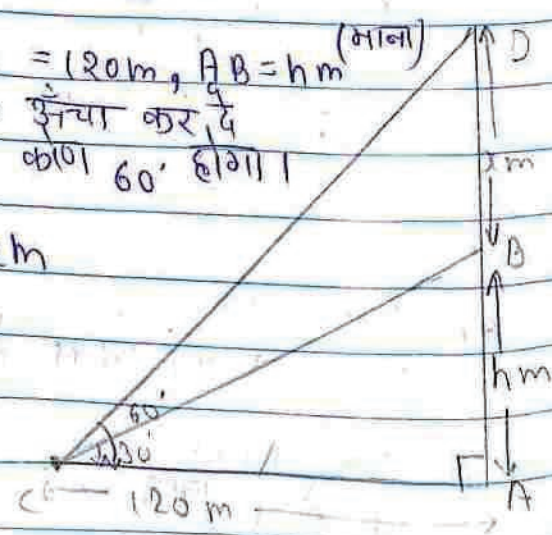 (माना)
= 120m, AB = hm
ऊँचा कर दे
कोण 60° होगा।
m
D
x m
B
h m
60°
30°
C
120 m
A